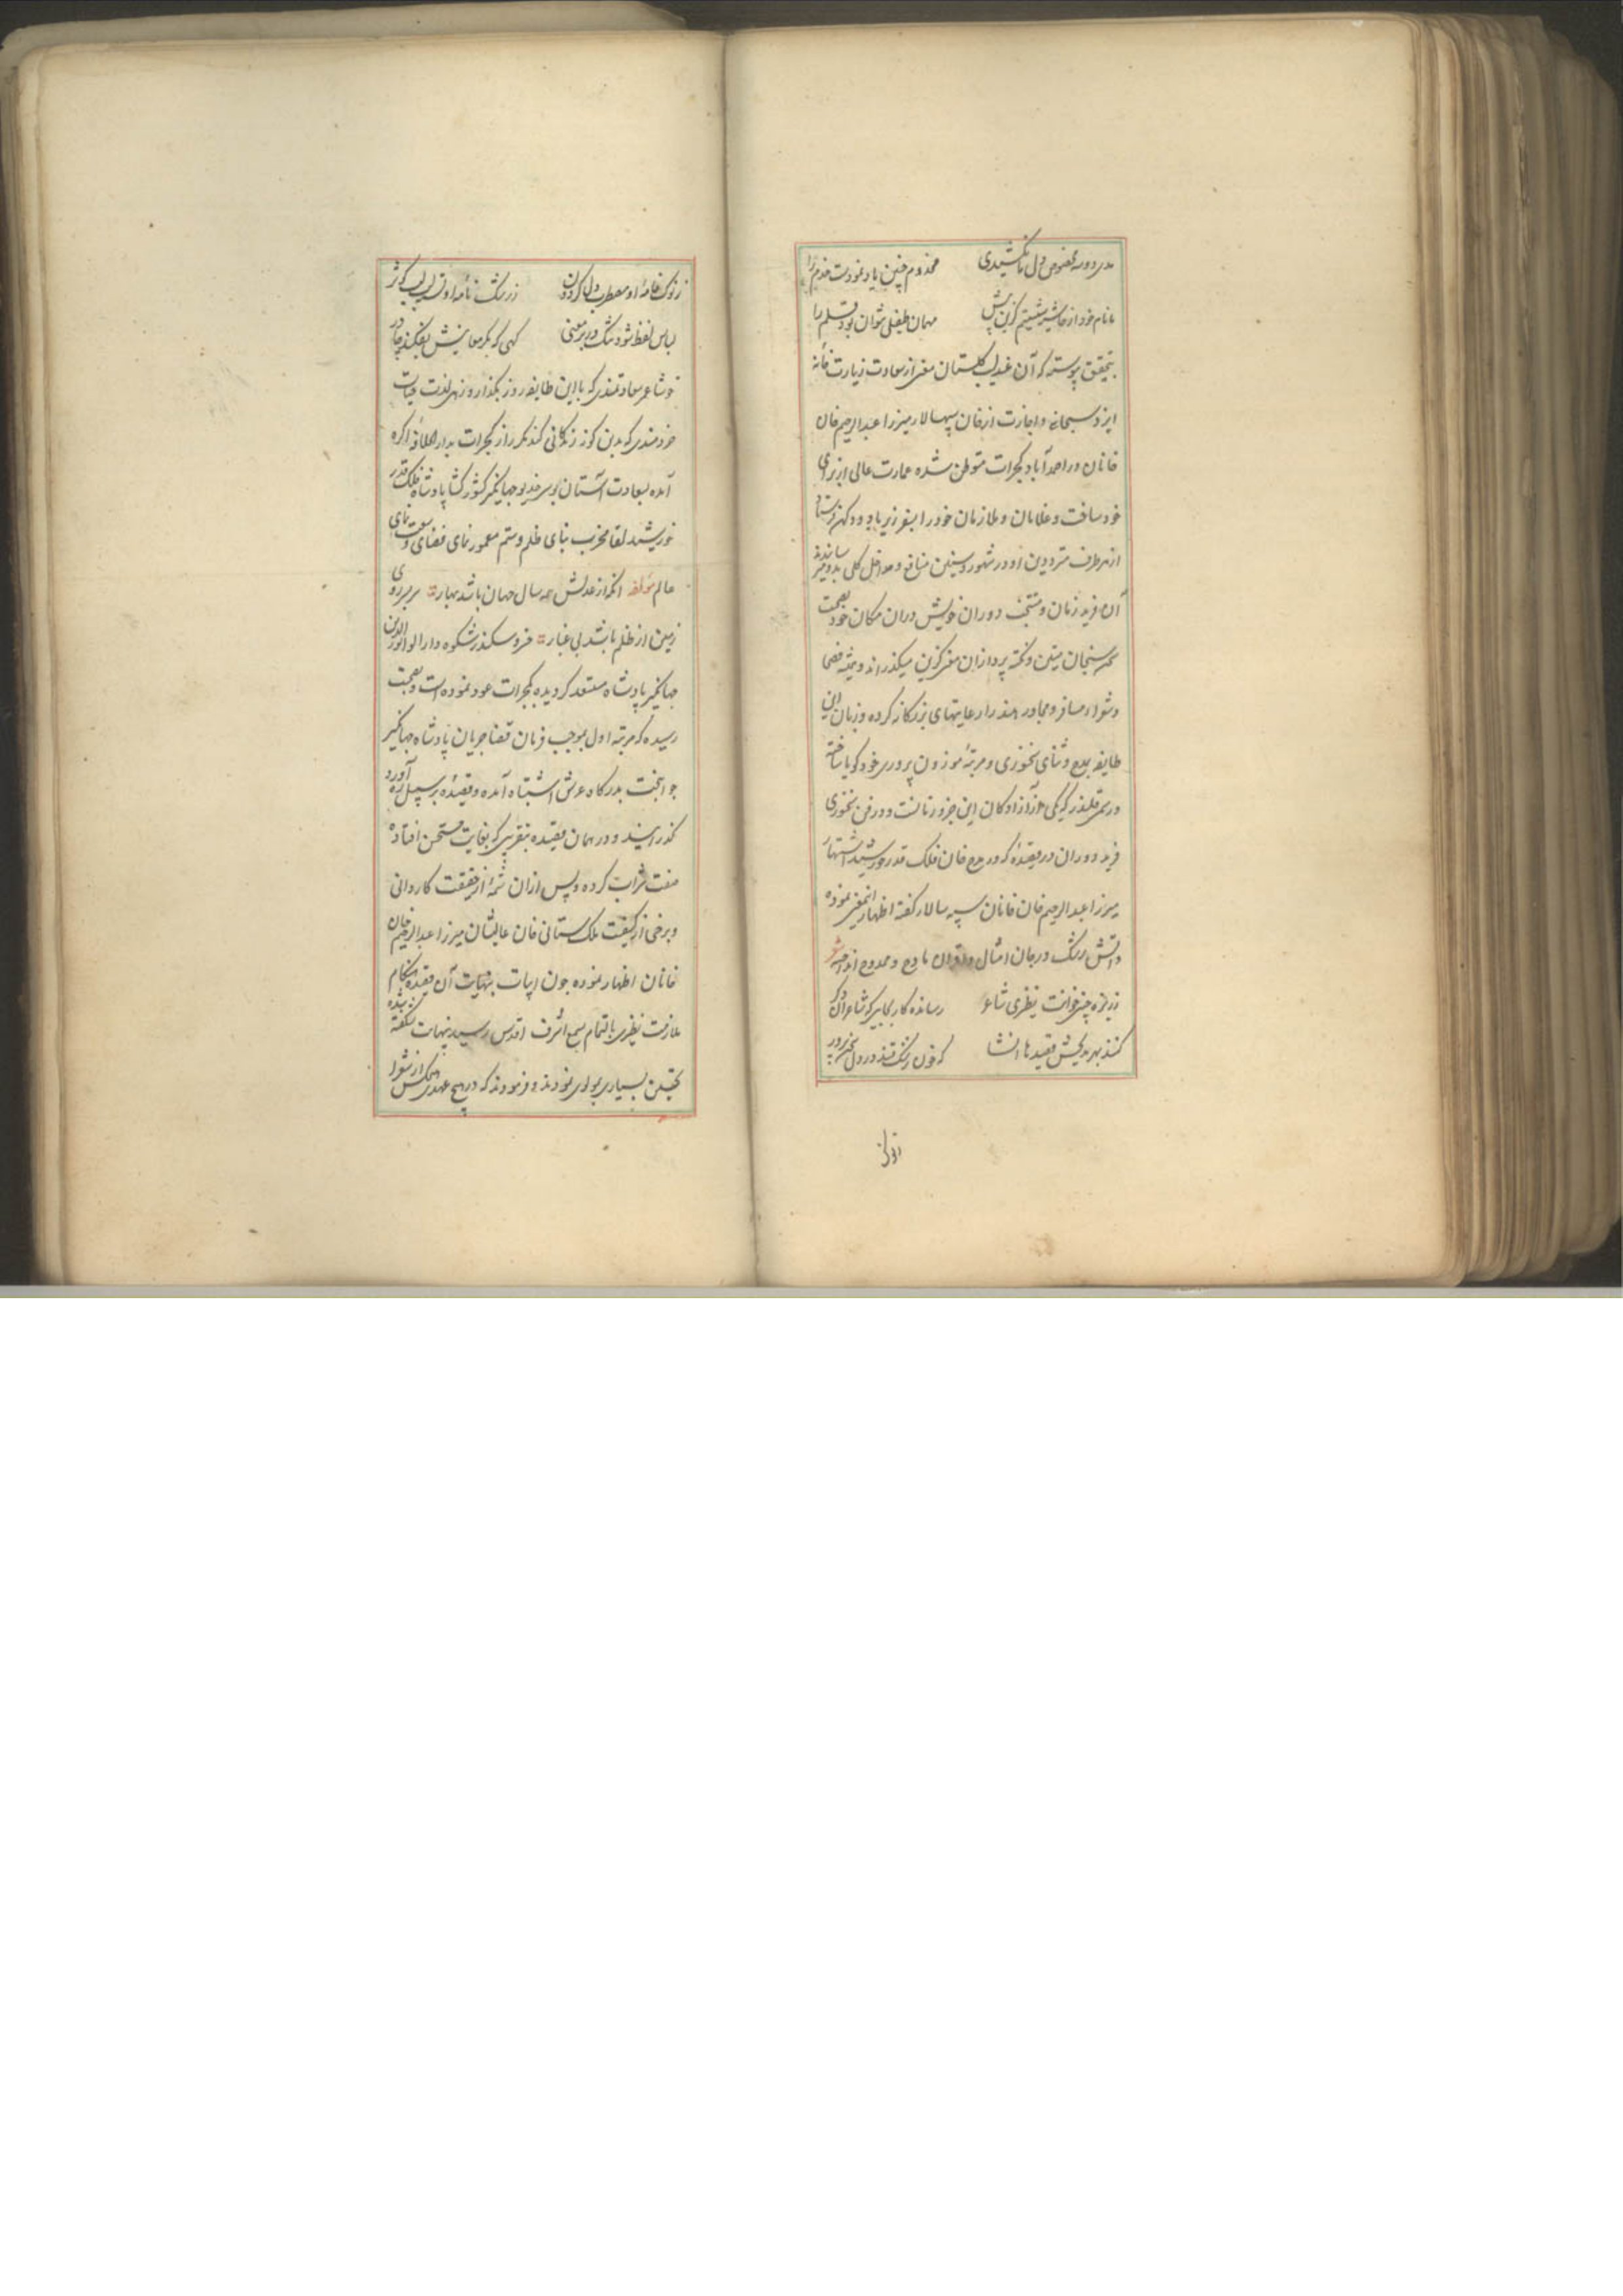 مخدوم چنین یاد نمودست خدم را
ما نام خود از حاشیه شستیم کزین پیش مهمان طفیلی نتوان بود قلم را
بتحقیق پیوسته که آن عندلیب گلستان معنی از سعادت زیارت خانه
ایزد سبحانه و اجازت از خان سپهسالار میرزا عبدالرحیم خان
خانان در احمدآباد کجرات متوطن شده عمارت عالی از برای
خود ساخت و غلامان و ملازمان خود را بسفر زیرباد و دکهن فرستاد
از هر طرف مترددین او در شهور و سنین منافع و مداخل کلی بدو میرسانیدند
آن فرید زمان و منتخب دوران خویش دران مکان خود بصحبت
سخن سنجان متین و نکته پردازان معنی کزین میکذراند و همیشه فصحا
و شعراء مسافر و مجاور هند را رعایتهای بزرکانه کرده و زبان این
طایفه بمدح و ثنای سخنوری و مرتبهٔ موزون پروری خود کویا ساخته
و رسمی قلندر که یکی از آزادکان این جزو زمانست و در فن سخنوری
فرید دوران در قصیدهٔ که در مدح خان فلک قدر خورشید اشتهار
میرزا عبدالرحیم خان خانان سپه سالار کفته اظهار اینمعنی نموده
و آتش رشک در جان امثال و اقران مادح و ممدوح انداخته شعر
ز ریزه چینی خوانت نظیری شاعر رسانده کار بجایی که شاعران دکر
کنند بهر مدیحش قصیدها انشا که خون رشک چکد در دل سخن پرور
ز نوک خامهٔ او معطر دل کردون ز رشک نامهٔ او تر لب کوثر
لباس لفظ شود تنک در بر معنی کهی که بکر معانیش بفکند چادر
خوشا عمر سعادتمندی که با این طایفه روز بکذارد و زهی لذت حیات
خردمندی که بدین کونه زندکانی کند مکرر از کجرات بدار الخلافه اکره
آمده بسعادت آستان بوسی خدیو جهانکیر کشور کشا پادشاه فلک قدر
خورشید لقا مخرب بنای ظلم و ستم معمور نمای فضای وسعت نمای
عالم مؤلفه آنکه از عدلش همه سال جهان باشد بهار سربسر روی
زمین از ظلم باشد بی غبار خسرو سکندر شکوه دارا لوا نورالدین
جهانکیر پادشاه مستعد کردیده بکجرات عود نموده است و بصحت
رسیده که مرتبه اول بموجب فرمان قضا جریان پادشاه جهانکیر
جوانبخت بدرکاه عرش اشتباه آمده و قصیدهٔ بر سبیل ره آورد
کذرانید و در همان قصیده بتقریبی که بغایت مستحسن افتاده
صفت شراب کرده و پس ازان شمهٔ از حقیقت کاردانی
و برخی از کیفیت ملک ستانی خان عالیشان میرزا عبدالرحیم خان
خانان اظهار نموده چون ابیات بنهایت آن قصیده هنکام
ملازمت نظیری بالتمام بسمع اشرف اقدس رسید بنهایت شکفته شده
تحسین بسیاری بمولوی نمودند و فرمودند که در هیچ عهدی هیچکس از شعرا